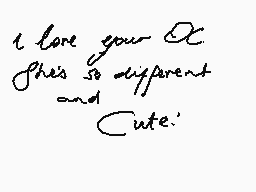 I love your OC
She's so different
and
Cute!